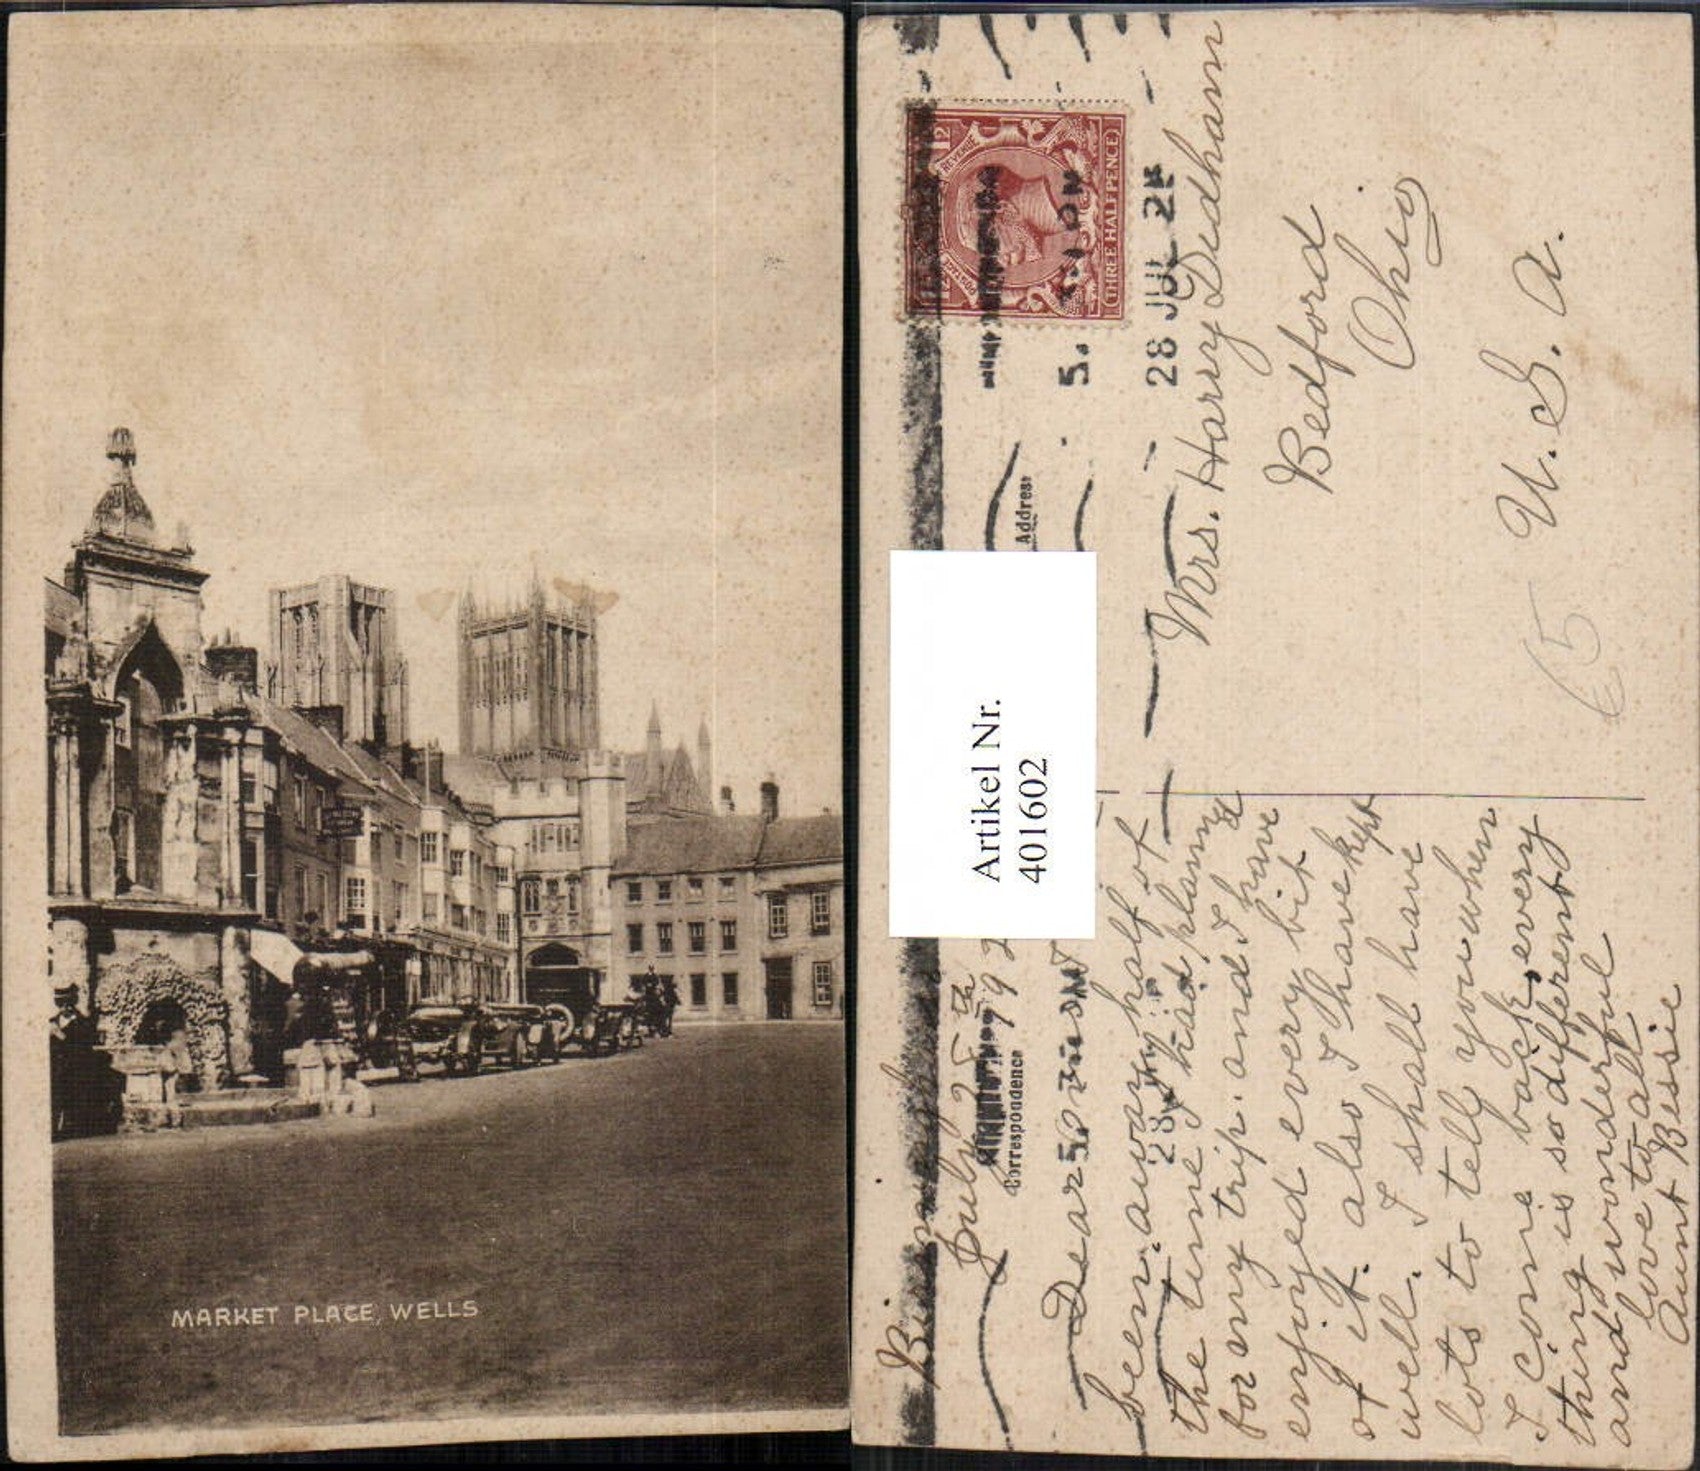 MARKET PLACE, WELLS
THREE HALFPENCE
POSTAGE
REVENUE
5.
28 JUL
Address
Mrs. Harry Dedham
Bedford
Ohio
U.S.A.
5
Artikel Nr.
401602
July 25th 192
Correspondence
Dear
been away half of
the time I had planned
for my trip. and I have
enjoyed every bit
of it. also I have kept
well. I shall have
lots to tell you when
I come back, every
thing is so different
and wonderful
love to all
Aunt Bessie